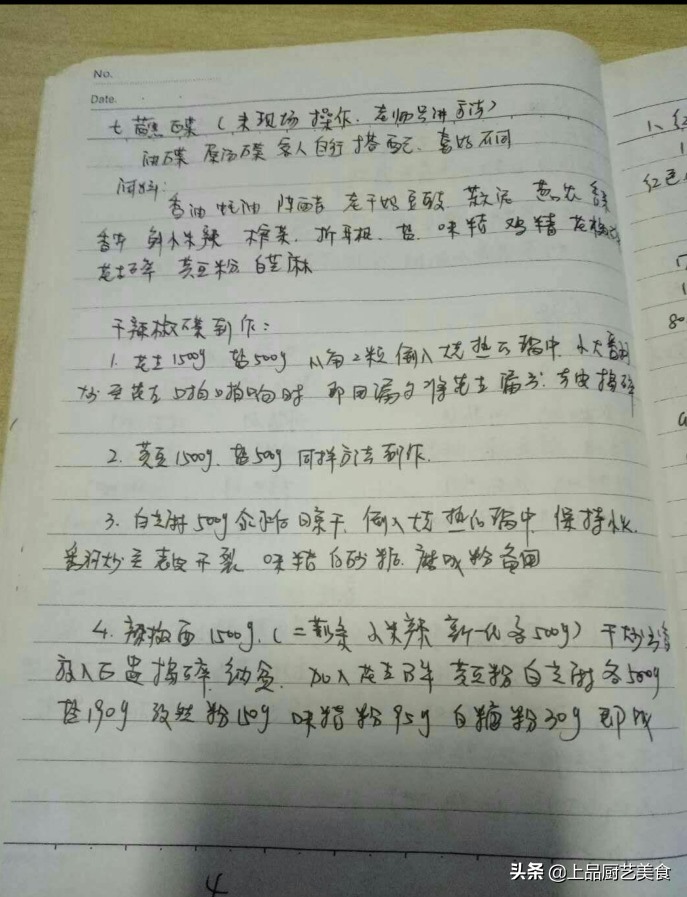 No.
Date.
七 蘸碟 (未现场操作. 老师口讲方法)
油碟 原汤碟 客人自行搭配. 喜好不同
调料:
香油 蚝油 陈醋 老干妈豆豉 蒜泥 葱花 香菜
香芹 鲜小米辣 榨菜. 折耳根. 盐. 味精 鸡精 花椒
花生碎 黄豆粉 白芝麻
干辣椒碟制作:
1. 花生1500g 盐500g 倒入烧热的锅中. 小火
炒至花生 啪啪响时 即用漏勺将花生漏出. 去皮捣碎
2. 黄豆1500g. 盐500g 同样方法制作.
3. 白芝麻500g 晾干. 倒入烧热的锅中. 保持小火.
翻炒至表皮开裂 味精 白砂糖. 磨成粉备用
4. 辣椒面1500g. (二荆条 小米辣 新一代各500g) 干炒出香
放入石 捣碎. 加入花生碎 黄豆粉 白芝麻各500g
盐190g 孜然粉150g 味精粉95g 白糖粉30g 即成
4
1、红
1
红色
1
80
头条 @上品厨艺美食